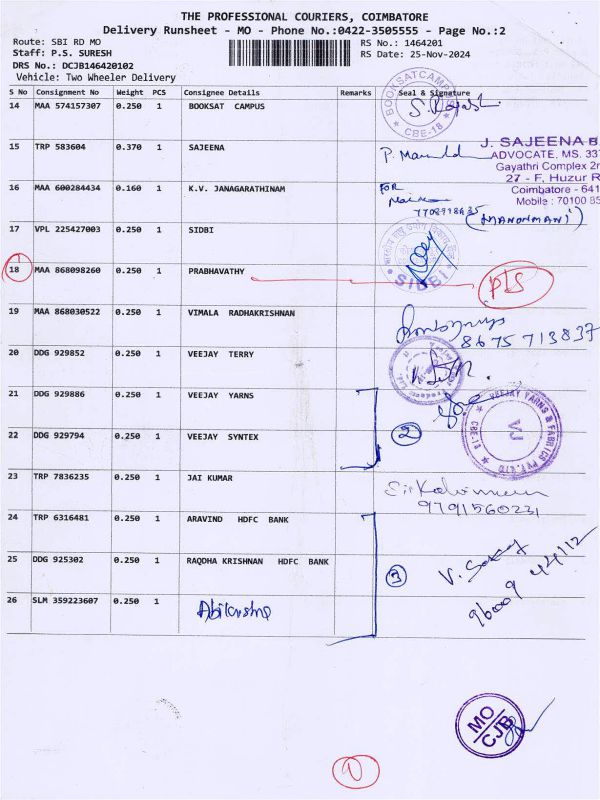 THE PROFESSIONAL COURIERS, COIMBATORE
Delivery Runsheet - MO - Phone No.:0422-3505555 - Page No.:2
Route: SBI RD MO RS No.: 1464201
Staff: P.S. SURESH RS Date: 25-Nov-2024
DRS No.: DCJB146420102
Vehicle: Two Wheeler Delivery
S No Consignment No Weight PCS Consignee Details Remarks Seal & Signature
14 MAA 574157307 0.250 1 BOOKSAT CAMPUS
BOOKSATCAMPUS
CBE-18
15 TRP 583604 0.370 1 SAJEENA
J. SAJEENA B
ADVOCATE, MS. 337
Gayathri Complex 2n
27 - F, Huzur R
Coimbatore - 641
Mobile : 70100 85
16 MAA 600284434 0.160 1 K.V. JANAGARATHINAM
FOR
(MANONMANI)
17 VPL 225427003 0.250 1 SIDBI
SIDBI
18 MAA 868098260 0.250 1 PRABHAVATHY
19 MAA 868030522 0.250 1 VIMALA RADHAKRISHNAN
8675713837
20 DDG 929852 0.250 1 VEEJAY TERRY
21 DDG 929886 0.250 1 VEEJAY YARNS
VEEJAY YARNS & FABRICS PVT. LTD
CBE-18
VJ
2
22 DDG 929794 0.250 1 VEEJAY SYNTEX
23 TRP 7836235 0.250 1 JAI KUMAR
9791560231
24 TRP 6316481 0.250 1 ARAVIND HDFC BANK
25 DDG 925302 0.250 1 RAQDHA KRISHNAN HDFC BANK
3
26 SLM 359223607 0.250 1
MO
CJB
1